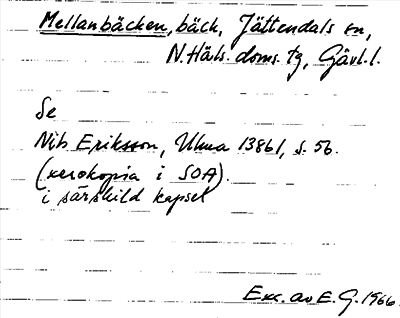 Mellanbäcken, bäck, Jättendals sn,
N. Häls. doms. tg, Gävl. l.
Se
Nils Eriksson, Ulma 13861, s. 56.
(xerokopia i SOA).
i särskild kapsel
Exc. av E. G. 1966.